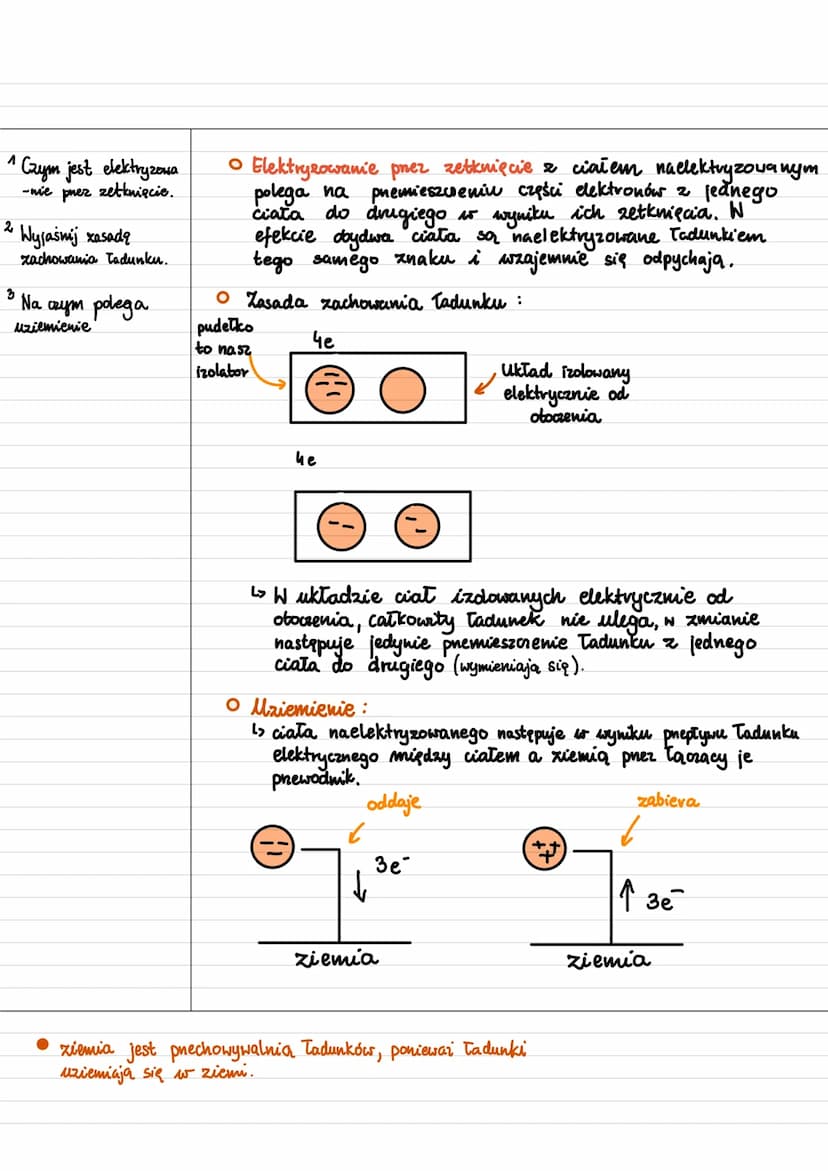 1 Czym jest elektryzowa
-nie przez zetknięcie.
2 Wyjaśnij zasadę
zachowania ładunku.
3 Na czym polega
uziemienie
○ Elektryzowanie przez zetknięcie z ciałem naelektryzowanym
polega na przemieszczeniu części elektronów z jednego
ciała do drugiego w wyniku ich zetknięcia. W
efekcie obydwa ciała są naelektryzowane ładunkiem
tego samego znaku i wzajemnie się odpychają.
○ Zasada zachowania ładunku :
pudełko
to nasz
izolator
4e
układ izolowany
elektrycznie od
otoczenia
4e
↳ W układzie ciał izolowanych elektrycznie od
otoczenia, całkowity ładunek nie ulega, w zmianie
następuje jedynie przemieszczenie ładunku z jednego
ciała do drugiego (wymieniają się).
○ Uziemienie :
↳ ciała naelektryzowanego następuje w wyniku przepływu ładunku
elektrycznego między ciałem a ziemią przez łączący je
przewodnik.
oddaje
3e⁻
ziemia
zabiera
++
+
3e⁻
ziemia
● ziemia jest przechowywalnią ładunków, ponieważ ładunki
uziemiają się w ziemi.